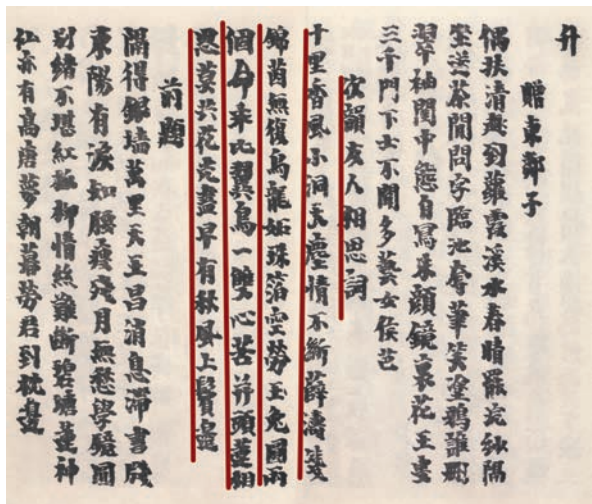 贈東鄰子
偶挾清興到蘿霞溪水春晴罷浣紗隔
座送茶閒問字臨池奪筆笑塗鴉誰刪
翠袖閨中態自寫朱顏鏡裏花王
三千門下士不聞多藝女侯芭
次韻友人相思詞
十里香風小洞天塵情不斷薛濤箋
錦茵無復烏龍妬珠箔空勞玉兔圓兩
個命乖比翼鳥一雙心苦并頭蓮相
思莫共花荒盡早有秋風上鬢邊
前題
隔得銀墻萬里天王昌消息滯書牋
東陽有淚知腰瘦殘月無愁學靨圓
別緒不堪紅板柳情絲難斷碧塘蓮神
仙亦有高唐夢朝暮勞君到枕邊